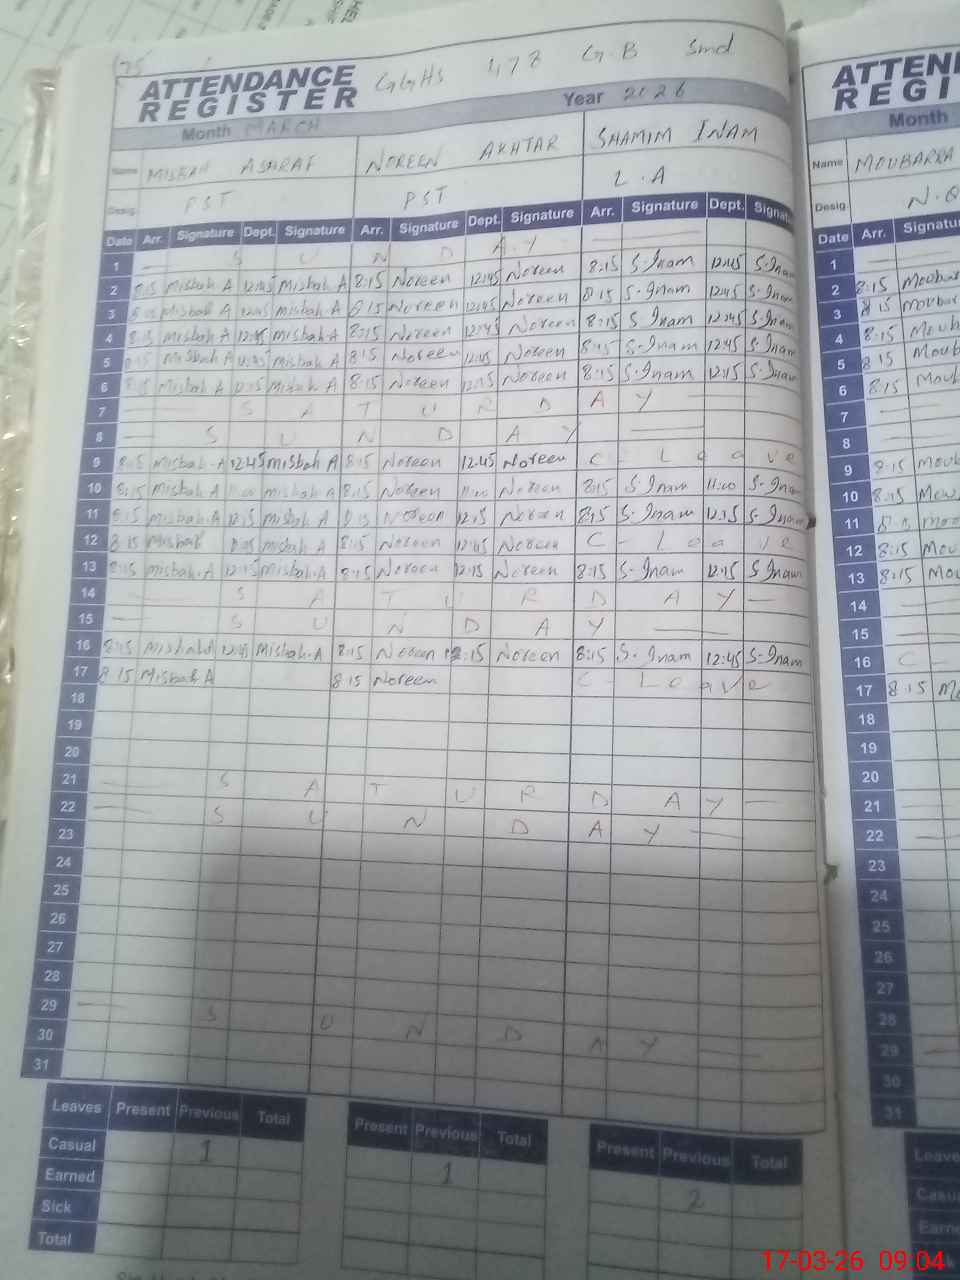 ATTENDANCE REGISTER GGHS 478 G.B Smd
Month MARCH Year 2026
Name MISBAH ASHRAF NOREEN AKHTAR SHAMIM INAM
Desig. PST PST L.A
Date Arr. Signature Dept. Signature Arr. Signature Dept. Signature Arr. Signature Dept. Signature
1 S U N D A Y
2 8:15 Misbah A 12:45 Misbah A 8:15 Noreen 12:45 Noreen 8:15 S-Inam 12:45 S-Inam
3 Misbah A 12:45 misbah A 8:15 Noreen 12:45 Noreen 8:15 S-Inam 12:45 S-Inam
4 8:15 Misbah A 12:45 misbah-A 8:15 Noreen 12:45 Noreen 8:15 S-Inam 12:45 S-Inam
5 8:15 Misbah A 12:45 Misbah A 8:15 Noreen 12:45 Noreen 8:15 S-Inam 12:45 S-Inam
6 8:15 Misbah A 12:15 Misbah A 8:15 Noreen 12:15 Noreen 8:15 S-Inam 12:15 S-Inam
7 S A T U R D A Y
8 S U N D A Y
9 8:15 Misbah-A 12:45 misbah A 8:15 Noreen 12:45 Noreen C- Leave
10 8:15 Misbah A 11:00 misbah A 8:15 Noreen 11:00 Noreen 8:15 S-Inam 11:00 S-Inam
11 8:15 Misbah-A 12:15 misbah A 8:15 Noreen 12:15 Noreen 8:15 S-Inam 12:15 S-Inam
12 8:15 Misbah misbah-A 8:15 Noreen 12:45 Noreen C- Leave
13 8:15 misbah-A 12:15 misbah-A 8:15 Noreen 12:15 Noreen 8:15 S-Inam 12:15 S-Inam
14 S A T U R D A Y
15 S U N D A Y
16 8:15 Misbah A 12:45 Misbah-A 8:15 Noreen 12:15 Noreen 8:15 S-Inam 12:45 S-Inam
17 8:15 Misbah A 8:15 Noreen C- Leave
18
19
20
21 S A T U R D A Y
22 S U N D A Y
23
24
25
26
27
28
29 S U N D A Y
30
31
Leaves Present Previous Total Present Previous Total Present Previous Total
Casual 1 1 2
Earned
Sick
Total
Month
Name MOUBARRA
Desig
Date Arr.
1
2 8:15
3 8:15
4 8:15
5 8:15
6 8:15
7
8
9 8:15
10 8:15
11
12 8:15
13 8:15
14
15
16 C
17 8:15
18
19
20
21
22
23
24
25
26
27
28
29
30
31
17-03-26 09:04